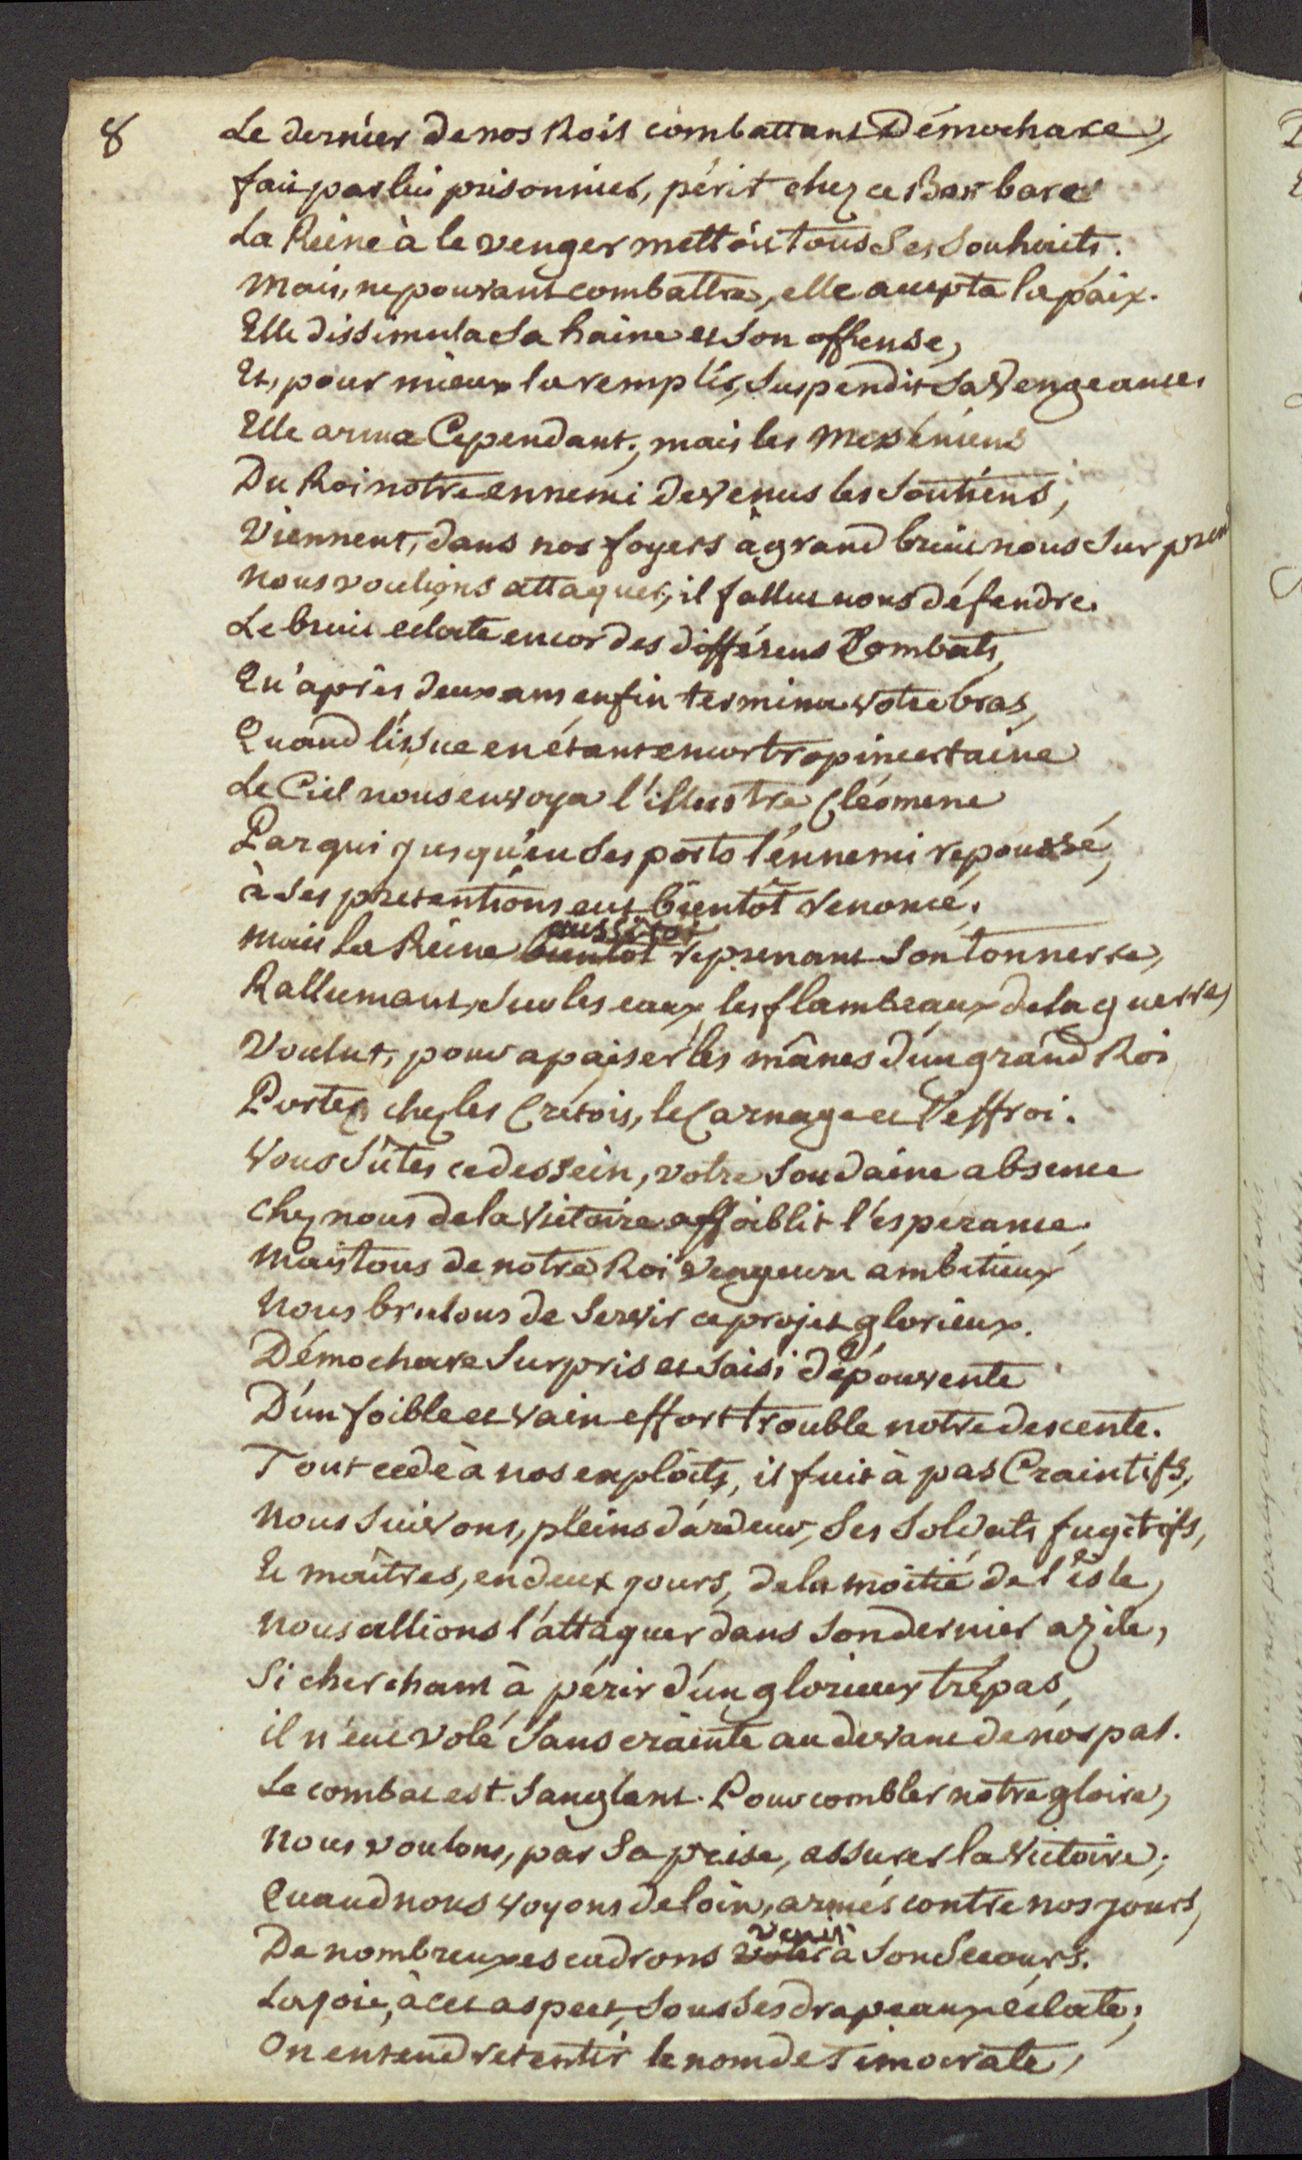 8
Le dernier de nos Rois combattant Démochare,
fait par lui prisonnier, périt chez ce Barbare
La Reine à le venger mettoit tous Ses Souhaits.
Mais, ne pouvant combattre, elle accepta la paix.
Elle dissimula Sa haine et Son offense,
Et, pour mieux la remplir, Suspendit Sa Vengeance.
Elle arma Cependant; mais les Messéniens
Du Roi notre ennemi devenus les Soutiens,
Viennent, dans nos foyers à grand bruit nous Surprend
Nous voulions attaquer, il fallut nous défendre.
Le bruit eclate encor des différens Combats,
Qu'après deux ans enfin termina votre bras,
Quand l'issue en étant encor trop incertaine
Le Ciel nous envoya l'illustre Cléomene
Par qui jusqu'en Ses ports l'ennemi repoussé,
à Ses pretentions eut bientôt renoncé.
Mais la Reine bientôt aussitôt reprenant Son tonnerre,
Rallumant, Sur les eaux, les flambeaux de la guerre,
Voulut, pour apaiser les mânes d'un grand Roi
Porter chez les Crétois, le Carnage et l'effroi.
Vous Sûtes ce dessein, votre Soudaine absence
Chez nous de la Victoire affoiblit l'espérance,
Mais tous de notre Roi Vengeurs ambitieux
Nous brulons de Servir ce projet glorieux.
Démochare Surpris et Saisi d'épouvente
D'un foible et vain effort trouble notre descente.
Tout cede à nos exploits, il fuit à pas Craintifs,
Nous Suivons, pleins d'ardeur, Ses Soldats fugitifs,
Et maîtres, en deux jours, de la moitié de l'isle,
Nous allions l'attaquer dans Son dernier azile,
Si cherchant à périr d'un glorieux trépas,
il n'eut volé Sans crainte au devant de nos pas.
Le combat est Sanglant. Pour combler notre gloire,
Nous voulons, par Sa prise, assurer la Victoire;
Quand nous voyons de loin, armés contre nos jours,
De nombreux escadrons voler venir à Son Secours.
La joie, à cet aspect, Sous Ses drapeaux éclate;
On entend retentir le nom de Timocrate,